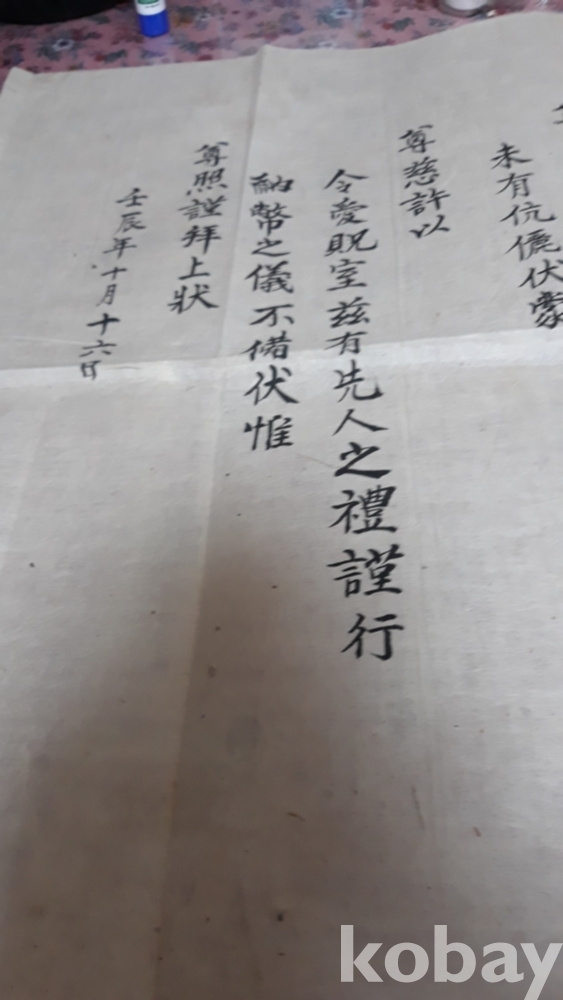 未有伉儷伏蒙
尊慈許以
令愛貺室茲有先人之禮謹行
納幣之儀不備伏惟
尊照謹拜上狀
壬辰年十月十六日
kobay